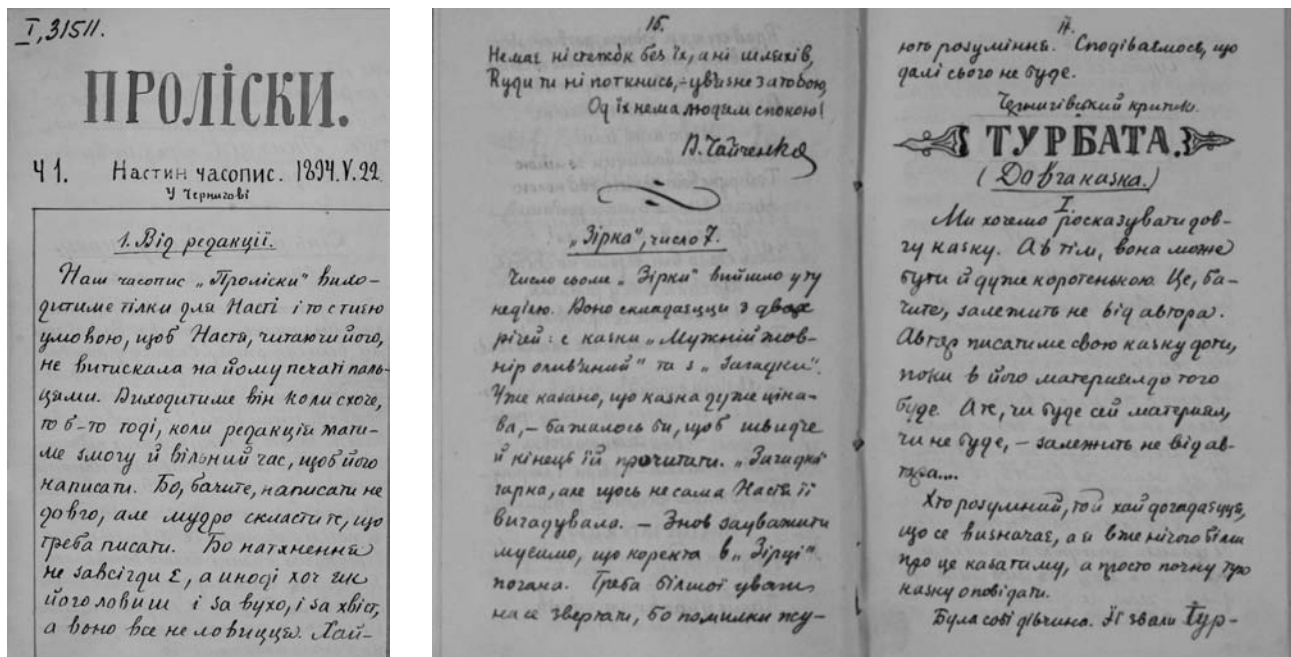 I, 31511.
ПРОЛІСКИ.
Ч 1. Настин часопис. 1894.V.22.
У Чернигові
1. Від редакції.
Наш часопис „Проліски" вихо-
дитиме тілки для Насті і то с тиєю
умовою, щоб Настя, читаючи його,
не витискала на йому печаті паль-
цями. Виходитиме він коли схоче,
то б-то тоді, коли редакція мати-
ме змогу й вільний час, щоб його
написати. Бо, бачите, написати не
довго, але мудро скласти те, що
треба писати. Бо натхнення
не завсігди є, а иноді хоч як
його ловиш і за вухо, і за хвіст,
а воно все не ловицця. Хай-
16.
Немає ні стежок без їх, а ні шляхів,
Куди ти ні поткнись, – ув'язне за тобою,
Од їх нема людям спокою!
В. Чайченко
„Зірка", число 7.
Число сьоме „Зірки" вийшло у ту
неділю. Воно складаєцця з двох
річей: с казки „Мужній жов-
нір олив'яний" та з „Загадки".
Уже казано, що казка дуже ціка-
ва, – бажалось би, щоб швидче
й кінець їй прочитати. „Загадка"
гарна, але щось не сама Настя її
вигадувала. – Знов зауважити
мусимо, що коректа в „Зірці"
погана. Треба більшої уваги
на се звертати, бо помилки псу-
17.
ють розуміння. Сподіваємось, що
далі сього не буде.
Чернигівський критик.
ТУРБАТА.
(Довга казка.)
I.
Ми хочемо росказувати дов-
гу казку. А втім, вона може
бути й дуже коротенькою. Це, ба-
чите, залежить не від автора.
Автор писатиме свою казку доти,
поки в його материялу до того
буде. А те, чи буде сей материял,
чи не буде, – залежить не від ав-
тора....
Хто розумний, той хай догадаєцця,
що се визначає, а я вже нічого більш
про це казатиму, а просто почну тую
казку оповідати.
Була собі дівчина. Її звали Тур-